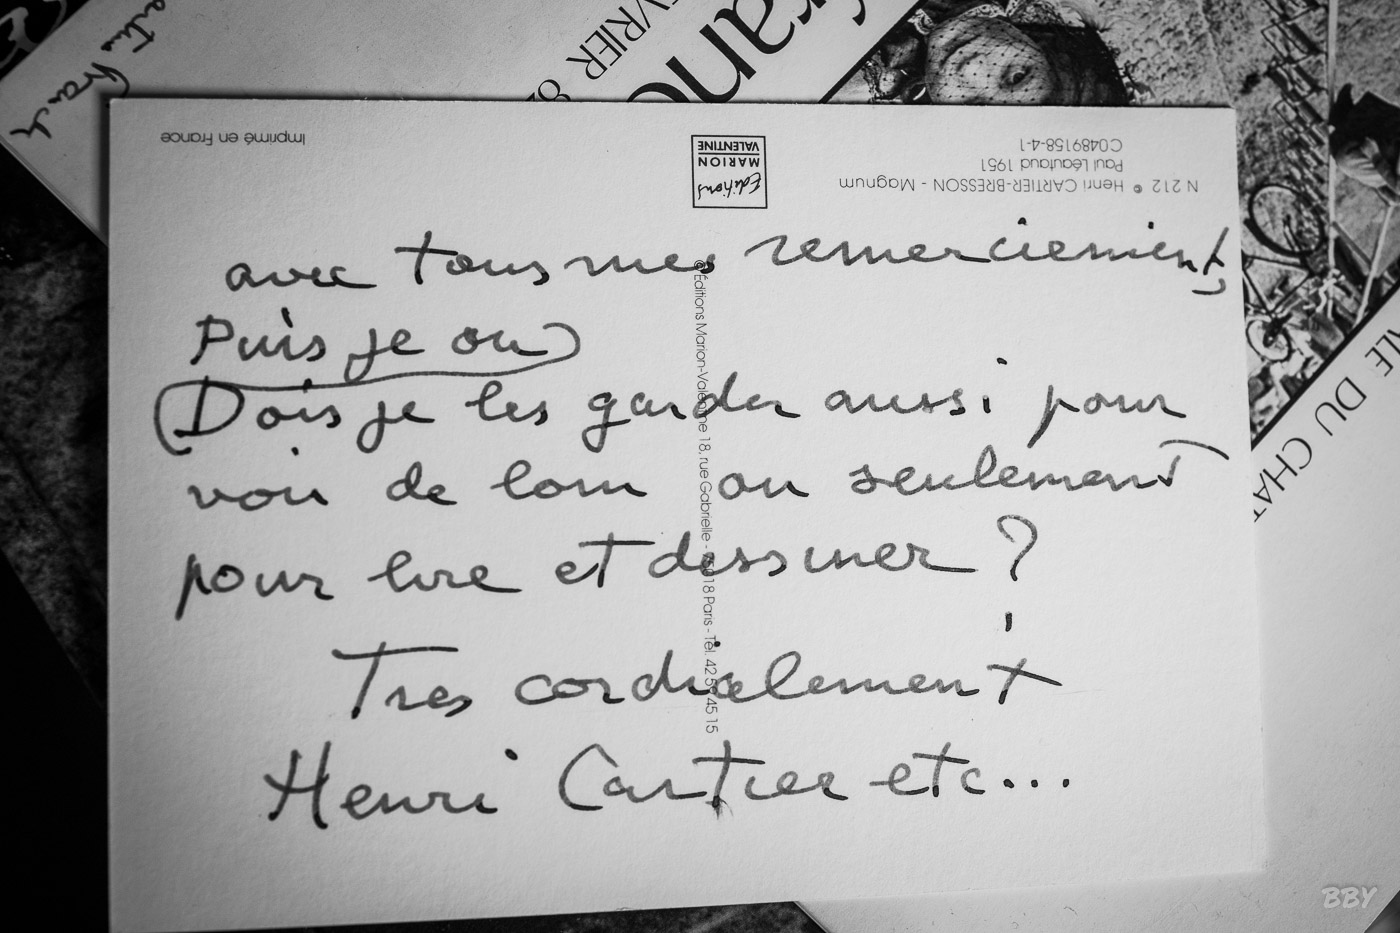 Cartier Franck
FÉVRIER 82
Franc
Imprimé en France
Editions
MARION
VALENTINE
N 212 © Henri CARTIER-BRESSON - Magnum
Paul Léautaud 1951
C0489158-4-1
avec tous mes remerciements,
Puis je ou
Dois je les garder aussi pour
voir de loin ou seulement
pour lire et dessiner ?
Très cordialement
Henri Cartier etc...
© Éditions Marion-Valentine 18, rue Gabrielle - 75018 Paris - Tél. 42 54 45 15
DU CHAT
BBY